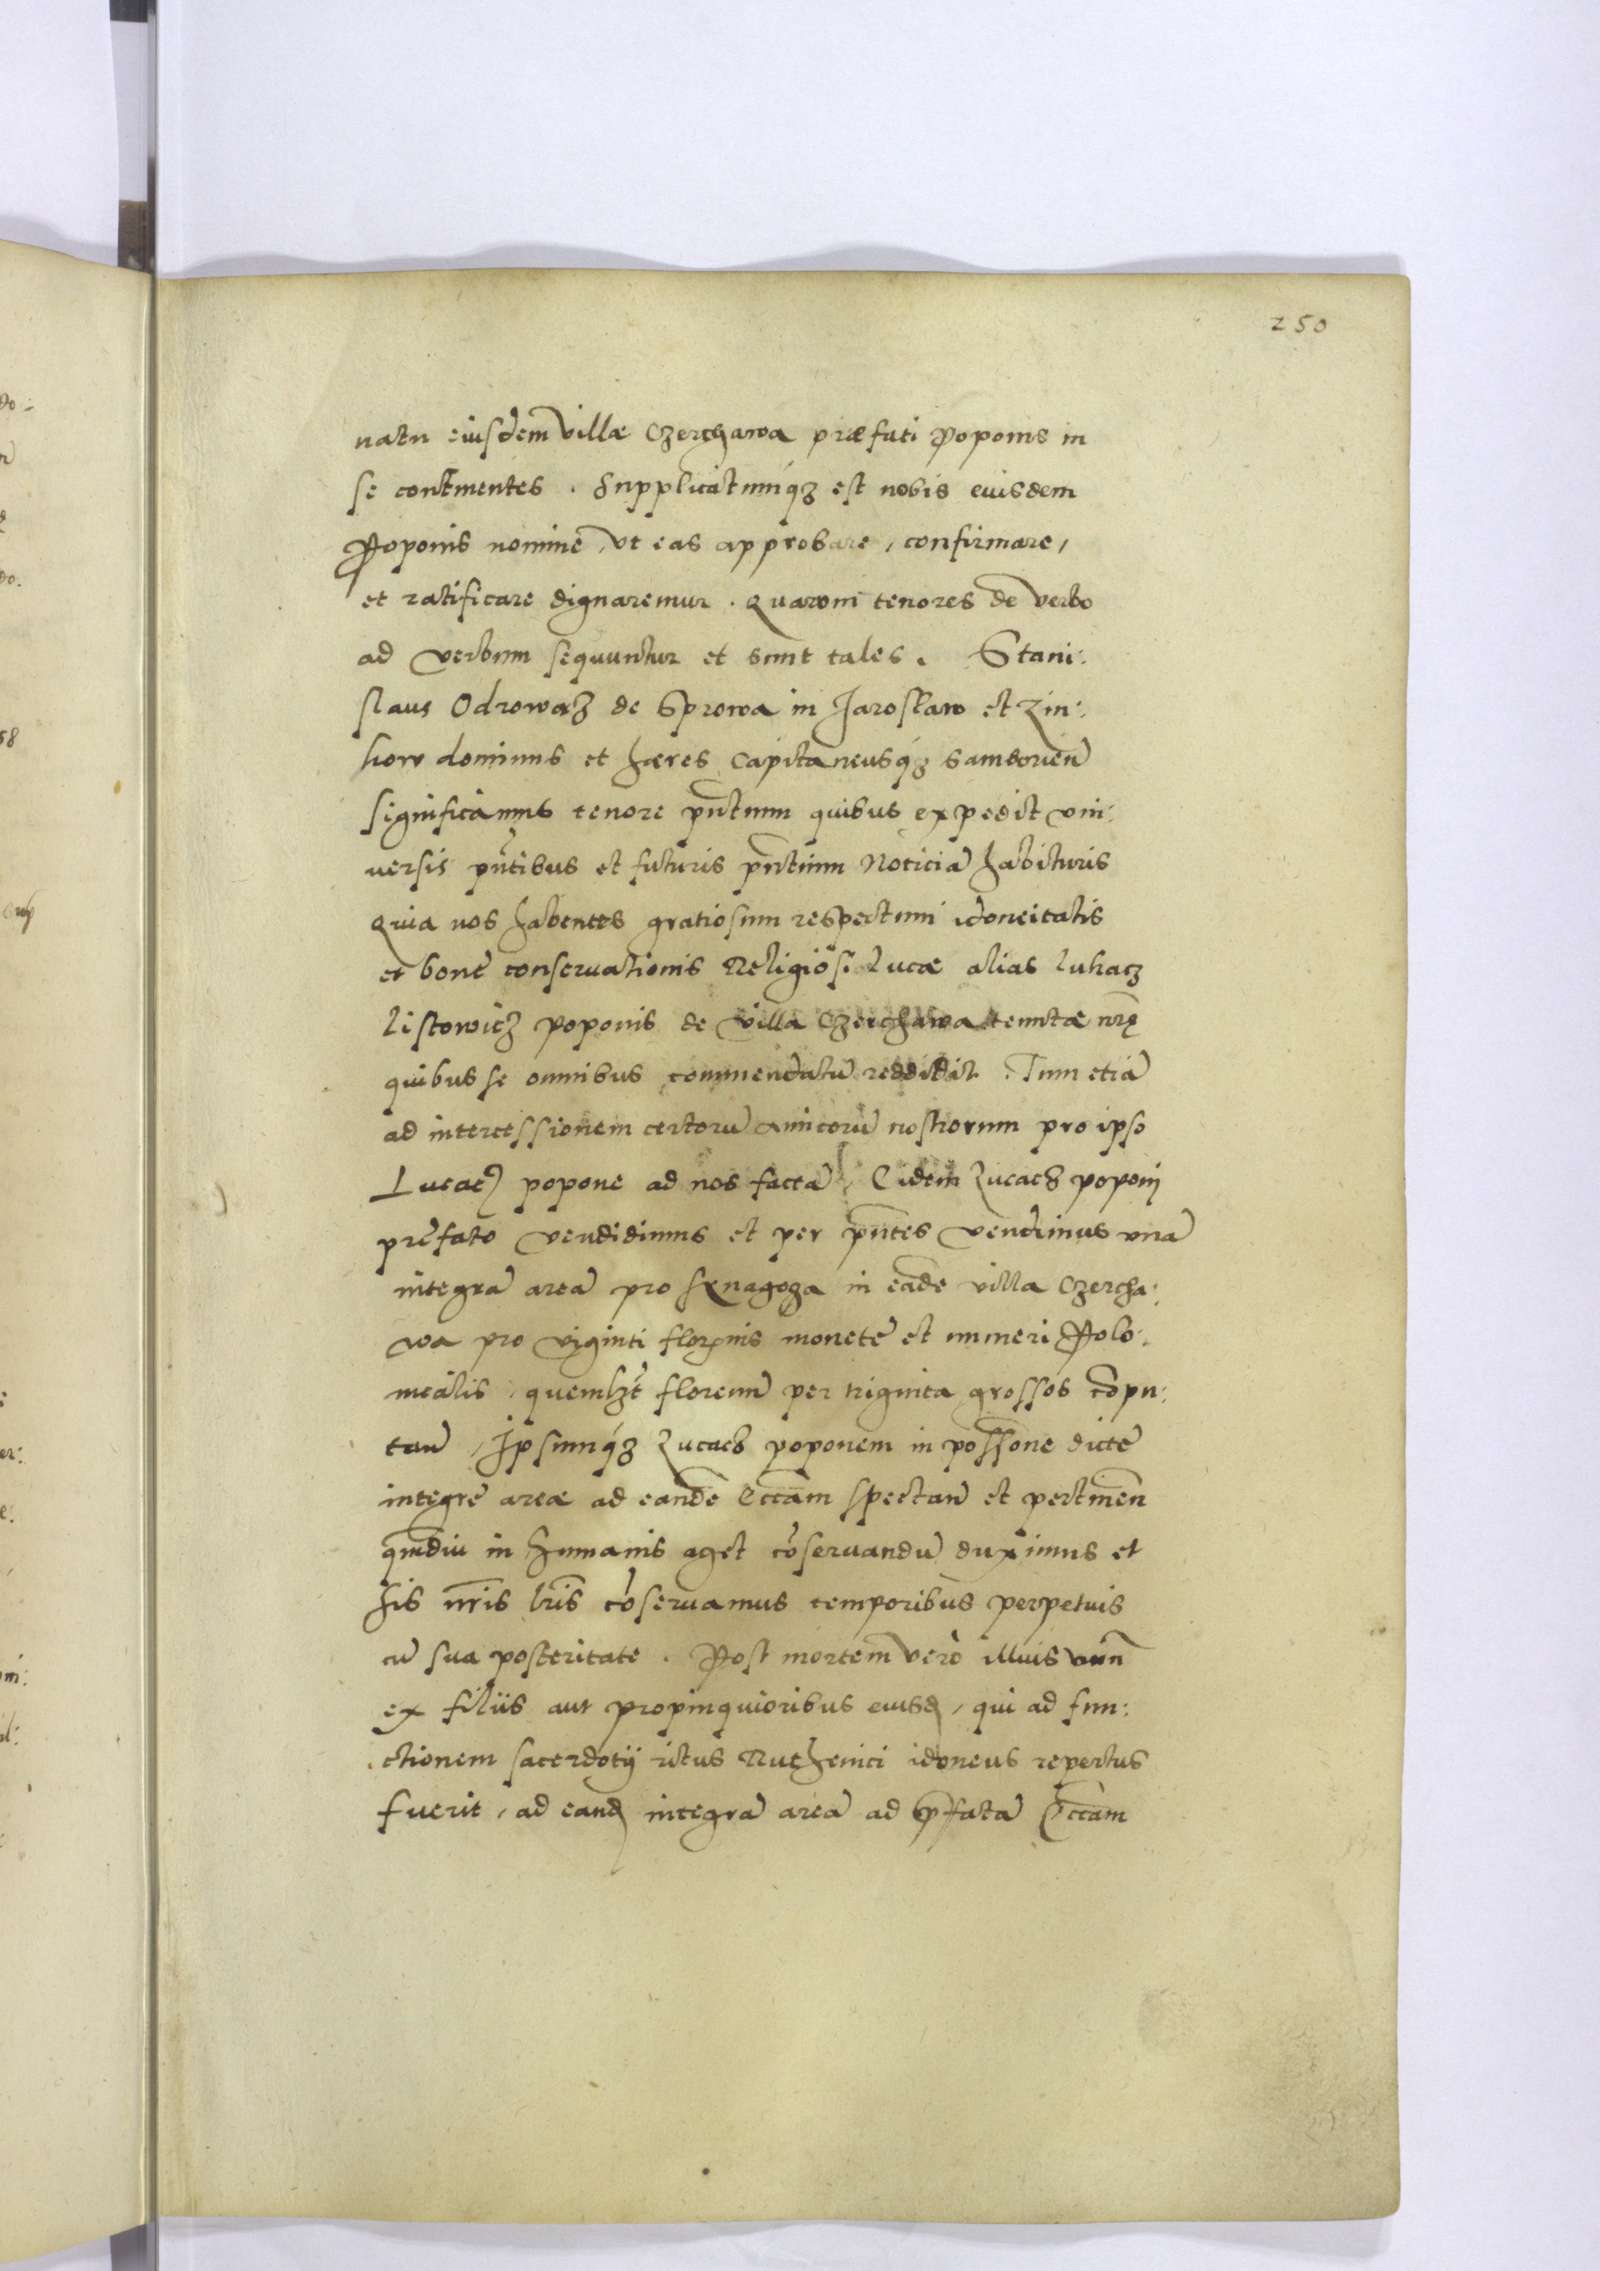 250
natu eiusdem villæ Czerchawa præfati Poponis in
se continentes. Supplicatumq́ȝ est nobis eiusdem
Poponis nomine, vt eas approbare, confirmare,
et ratificare dignaremur. Quarum tenores de verbo
ad verbum sequuntur et sunt tales. Stani:
slaus Odrowąż de Sprowa in Jarosław et Zin:
kow dominus et hæres Capitaneusq́ȝ Samborien̄
significamus tenore pn̄tium quibus expedit vni:
uersis pn̄tibus et futuris pn̄tium noticiā habituris
Quia nos habentes gratiosum respectum idoneitatis
et bonę conseruationis Religiosi Lucæ alias Lukacȝ
Listowicȝ poponis de villa Czerchawa tenutæ nr̄ę
quibus se omnibus commendatū reddidit. Tum etiā
ad intercessionem certorū amicorū nostrorum pro ipso
Lucacȝ popone ad nos factā, Eidem Lucacȝ poponi
pręfato vendidimus et per pn̄tes vendimus vnā
integrā areā pro Synagoga in eadē villa Czercha:
wa pro viginti florenis monetę et numeri Polo:
nicalis, quemlȝt florenū per triginta grossos cōpu:
tan̄, Ipsumq́ȝ Lucacȝ poponem in possone dictę
integrę areæ ad eandē Eccām spectan̄ et pertinen̄
qm̄diu in humanis aget cōseruandū duximus et
his nr̄is lr̄is cōseruamus temporibus perpetuis
cū sua posteritate. Post mortem verò illius vnū
ex filiis aut propinquioribus eiusd, qui ad fun:
ctionem sacerdotij ritus Ruthenici idoneus repertus
fuerit, ad eand integrā areā ad p̄fatā Eccām